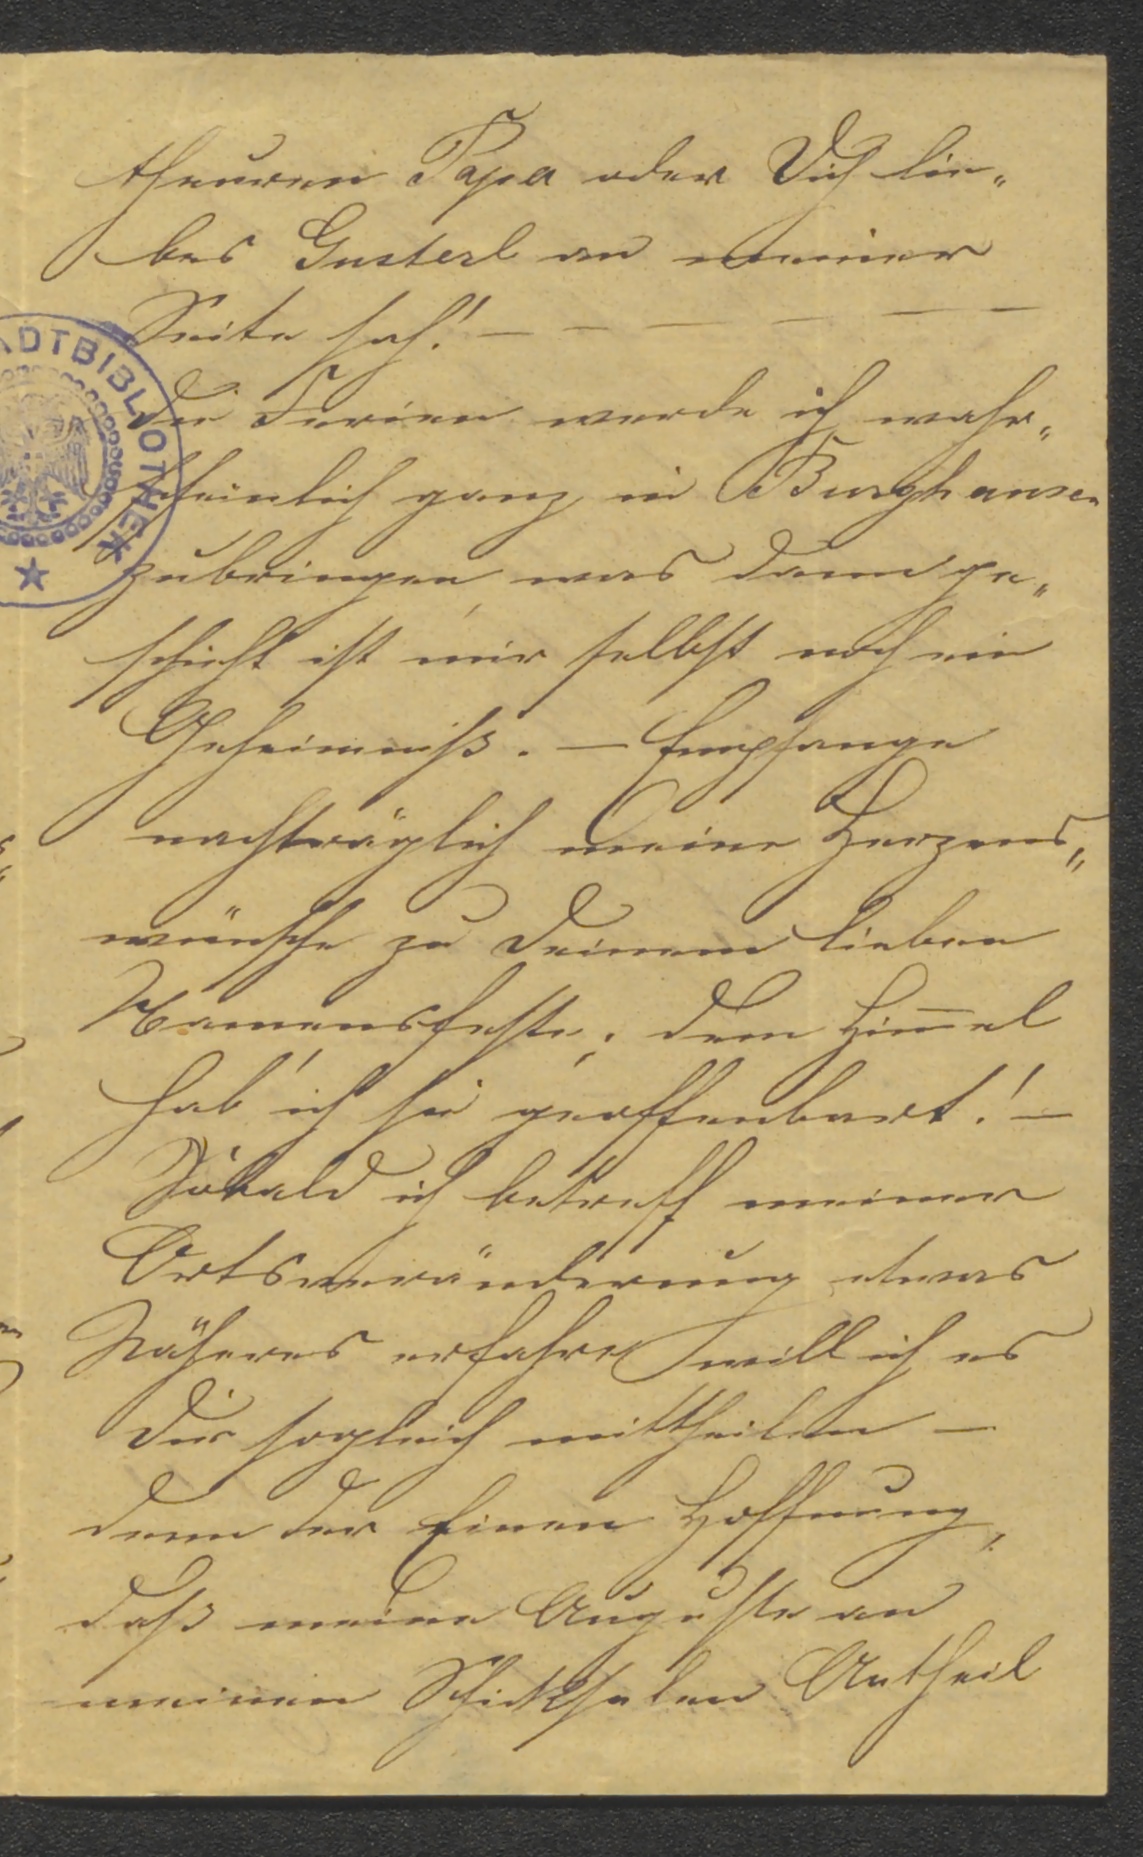 theuren Papa oder Dich lie„
bes Gusterl an meiner
Seite sah! – – – – – –
Die Ferien werde ich wahr„
scheinlich ganz in Burghausen
zubringen, was dann ge„
schieht ist mir selbst noch ein
Geheimniß. – Empfange
nachträglich meine Herzens„
wünsche zu Deinem lieben
Namensfeste; dem Him̅el
hab' ich sie geoffenbart! –
Sobald ich betreff meiner
Ortsveränderung etwas
Näheres erfahre, will ich es
Dir sogleich mittheilen –
denn der Einen Hoffnung,
daß meine Auguste an
meinen Schicksalen Antheil
ADTBIBLIOTHEK